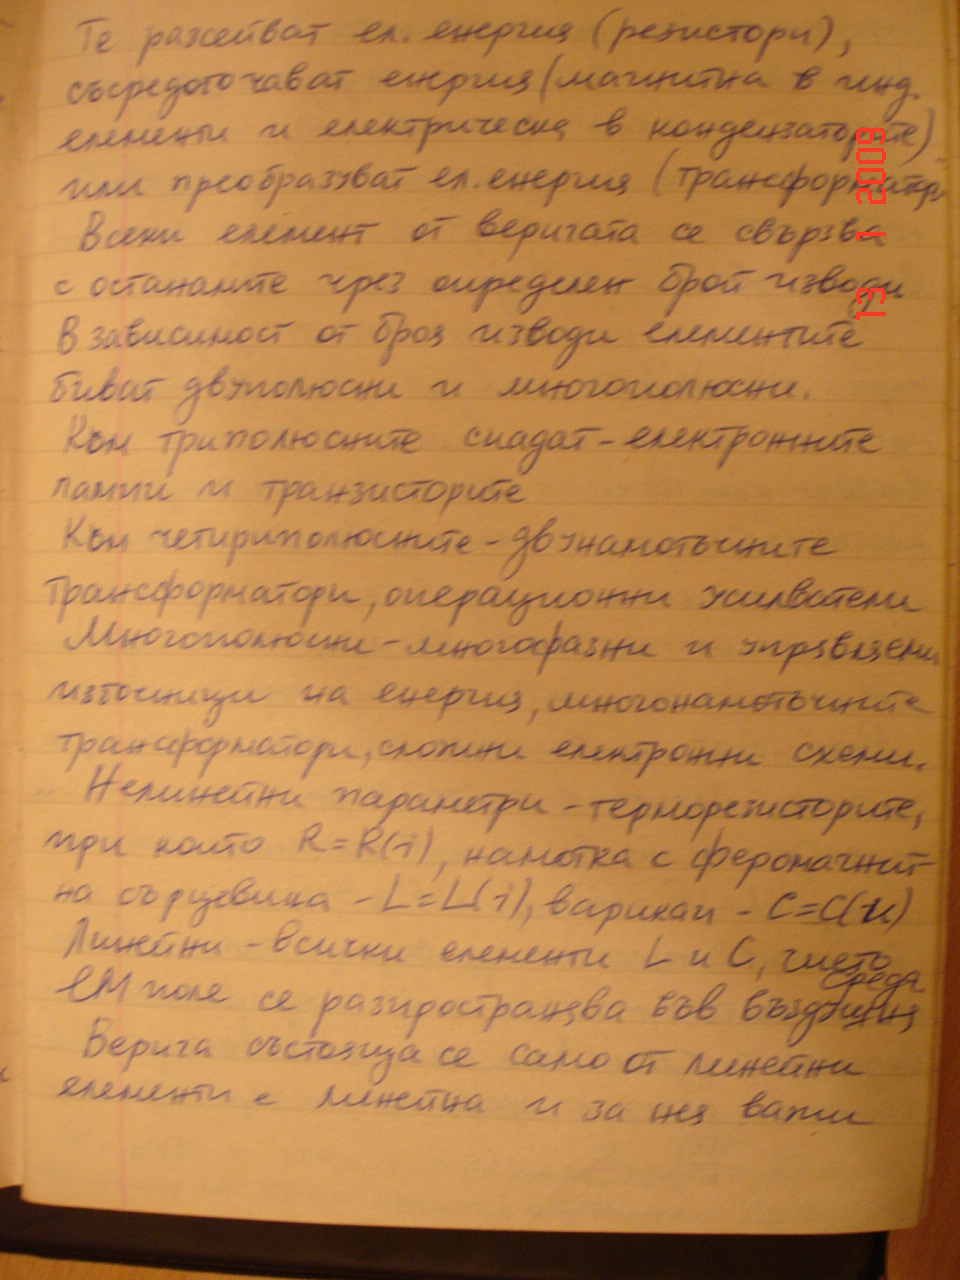 Те разсейват ел. енергия (резистори),
съсредоточават енергия (магнитна в инд.
елементи и електрическа в кондензаторите)
или преобразуват ел. енергия (трансформатори
Всеки елемент от веригата се свързва
с останалите чрез определен брой изводи
В зависимост от броя изводи елементите
биват двуполюсни и многополюсни.
Към триполюсните спадат - електронните
лампи и транзисторите
Към четириполюсните - двунамотъчните
трансформатори, операционни усилватели
Многополюсни - многофазни и управляеми
източници на енергия, многонамотъчните
трансформатори, сложни електронни схеми.
Нелинейни параметри - терморезисторите,
при които R=R(i), намотка с феромагнит-
на сърцевина - L=L(i), варикап - C=C(u)
Линейни - всички елементи L и C, чието
среда
ЕМ поле се разпространява във въздушна
Верига състояща се само от линейни
елементи е линейна и за нея важи
13 1 2009